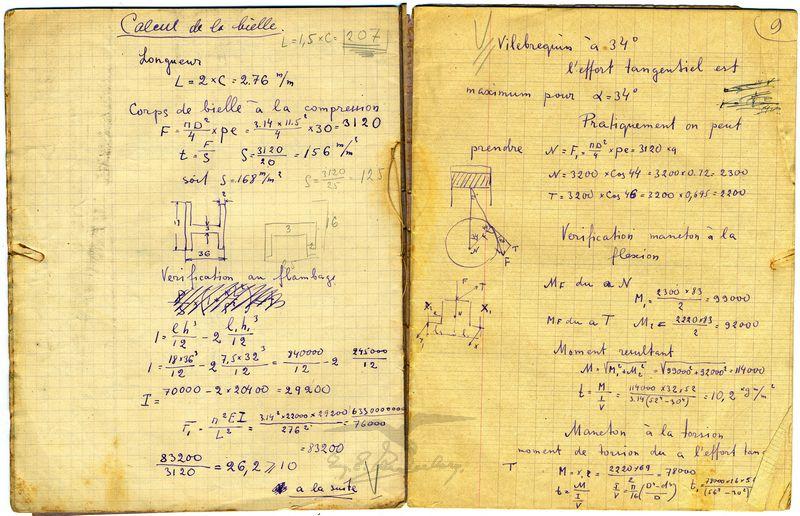 Calcul de la bielle.
L=1,5×C= 207
Longueur
L=2×C=2.76 m/m
Corps de bielle à la compression
F = πD²/4 × pe = 3.14×11.5²/4 ×30=3120
t = F/S S=3120/20 = 156 m/m²
soit S=168 m/m² S=3120/25 = 125
3
36
3
16
Verification au flambage
I = bh³/12 - 2 b₁h₁³/12
I = 18×36³/12 - 2 7,5×32³/12 = 840000/12 - 2 245000/12
I = 70000 - 2×20400 = 29200
F₁ = π²EI/L² = 3.14²×22000×29200/276² = 6330000000/76000
= 83200
83200/3120 = 26,2 > 10
a la suite
9
Vilebrequin à 34°
l'effort tangentiel est
maximum pour α=34°
Pratiquement on peut
prendre N = F₁ = πD²/4 × pe = 3120 kg
N = 3200 × Cos 44 = 3200×0.72 = 2300
T = 3200 × Cos 46 = 3200×0,695 = 2200
Verification maneton à la
flexion
MF du a N
M₁ = 2300×83/2 = 99000
MF du a T M₂ = 2220×83/2 = 92000
Moment resultant
M = √M₁²+M₂² = √99000²+92000² = 114000
t = M/(I/V) = 114000×32×52/3.14(52²-30²) = 10,2 kg m/m²
Maneton à la torsion
moment de torsion du a l'effort tan
T M = × = 2220×69/2 = 78000
t = M/(I/V)